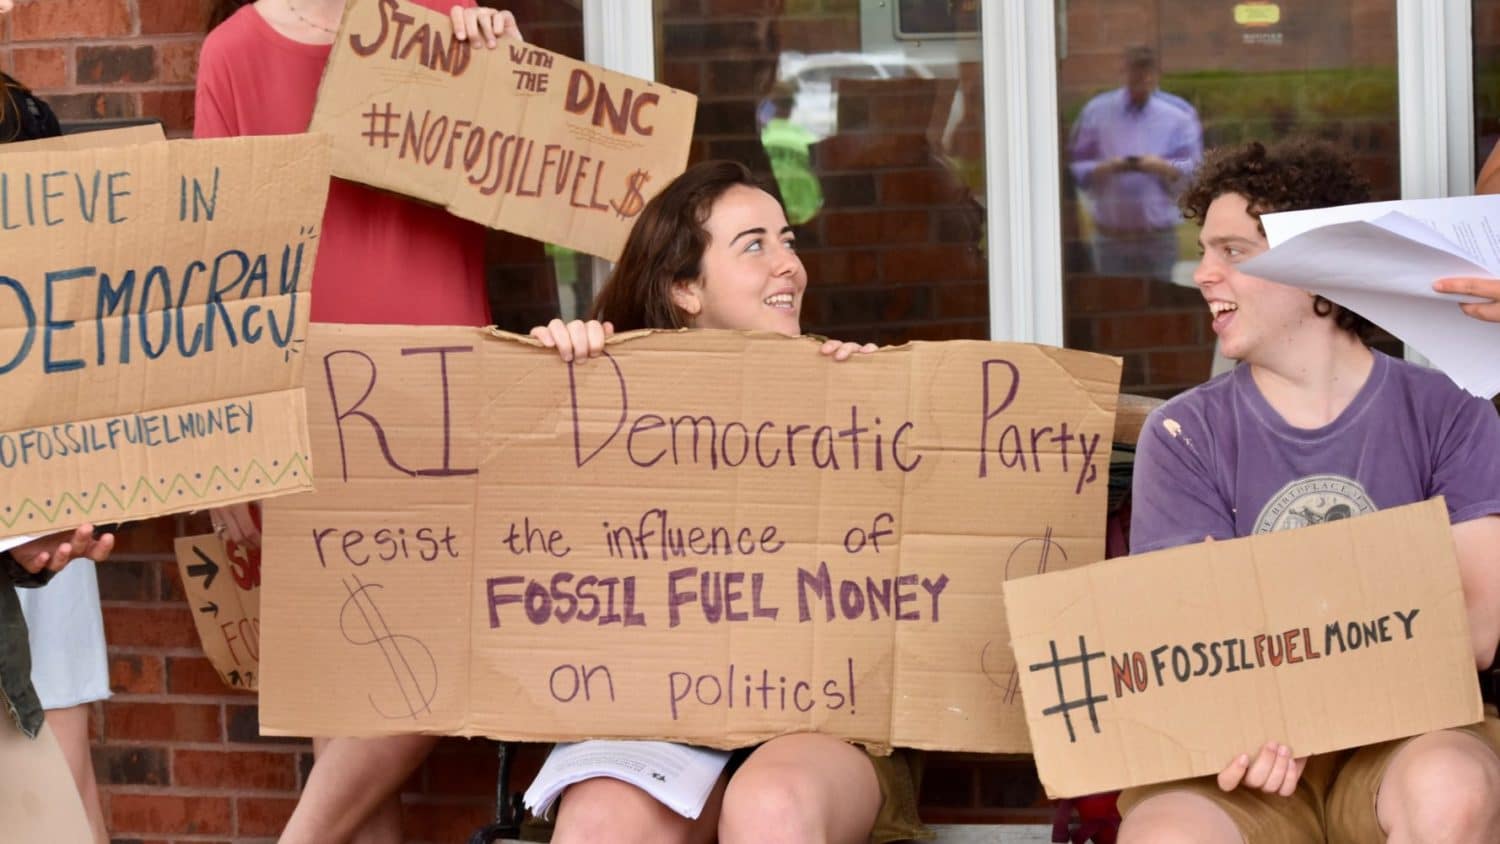 STAND WITH
THE DNC
#NOFOSSILFUEL$
LIEVE IN
DEMOCRACY
OFOSSILFUELMONEY
RI Democratic Party,
resist the influence of
FOSSIL FUEL MONEY
on politics!
$
$
#NOFOSSILFUELMONEY
THE BIRTHPLACE
FOS